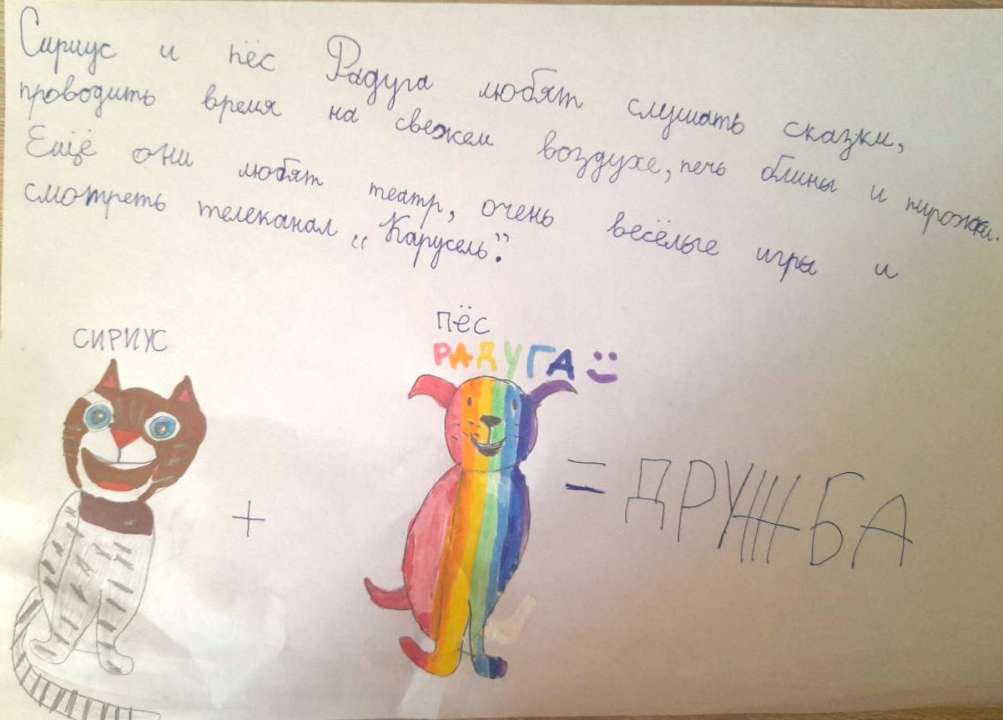 Сириус и пёс Радуга любят слушать сказки,
проводить время на свежем воздухе, печь блины и пирожки.
Ещё они любят театр, очень весёлые игры и
смотреть телеканал „Карусель".
СИРИУС
ПЁС
РАДУГА
+
= ДРУЖБА